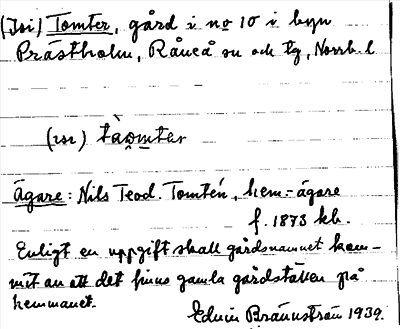 (Isi) Tomter, gård i no 10 i byn
Prästholm, Råneå sn och tg, Norrb. l
(isi) tàomter
Ägare: Nils Teod. Tomtén, hem.-ägare
f. 1873 kb.
Enligt en uppgift skall gårdsnamnet kom-
mit av att det finns gamla gårdställen på
hemmanet.
Edvin Brännström 1939.